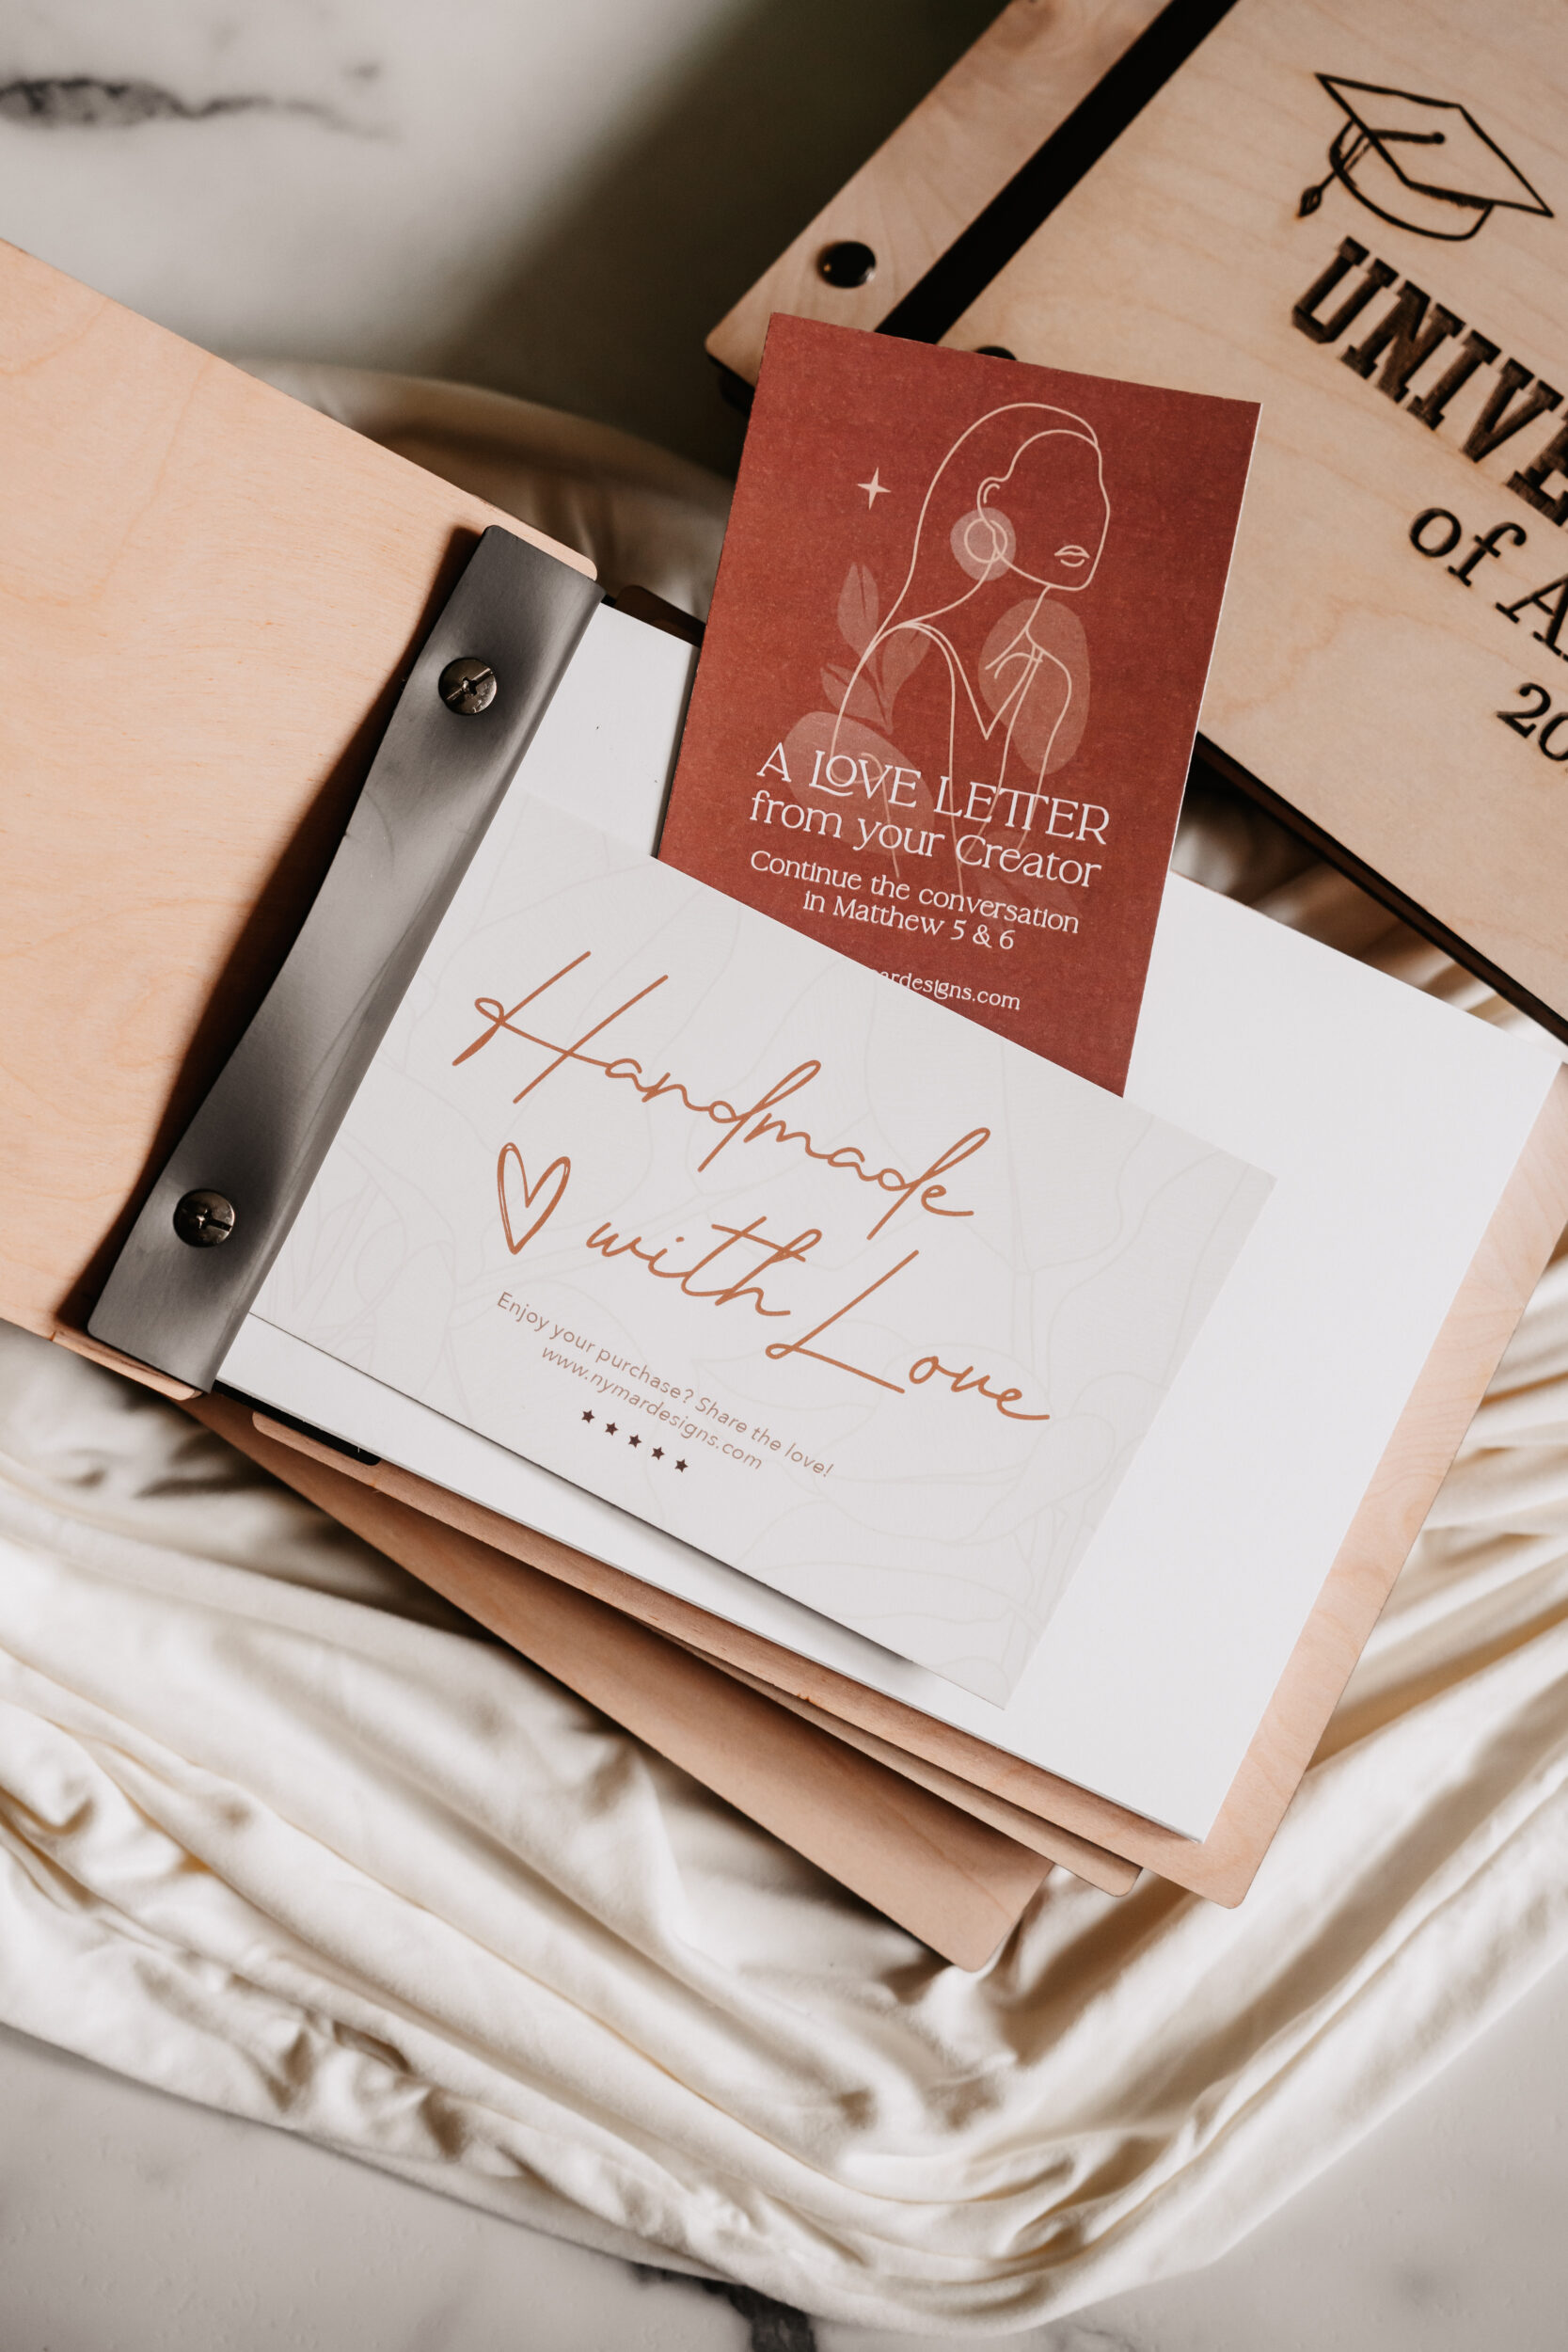 of
A LOVE LETTER
from your Creator
Continue the conversation
in Matthew 5 & 6
Handmade
with Love
Enjoy your purchase? Share the love!
www.nymardesigns.com